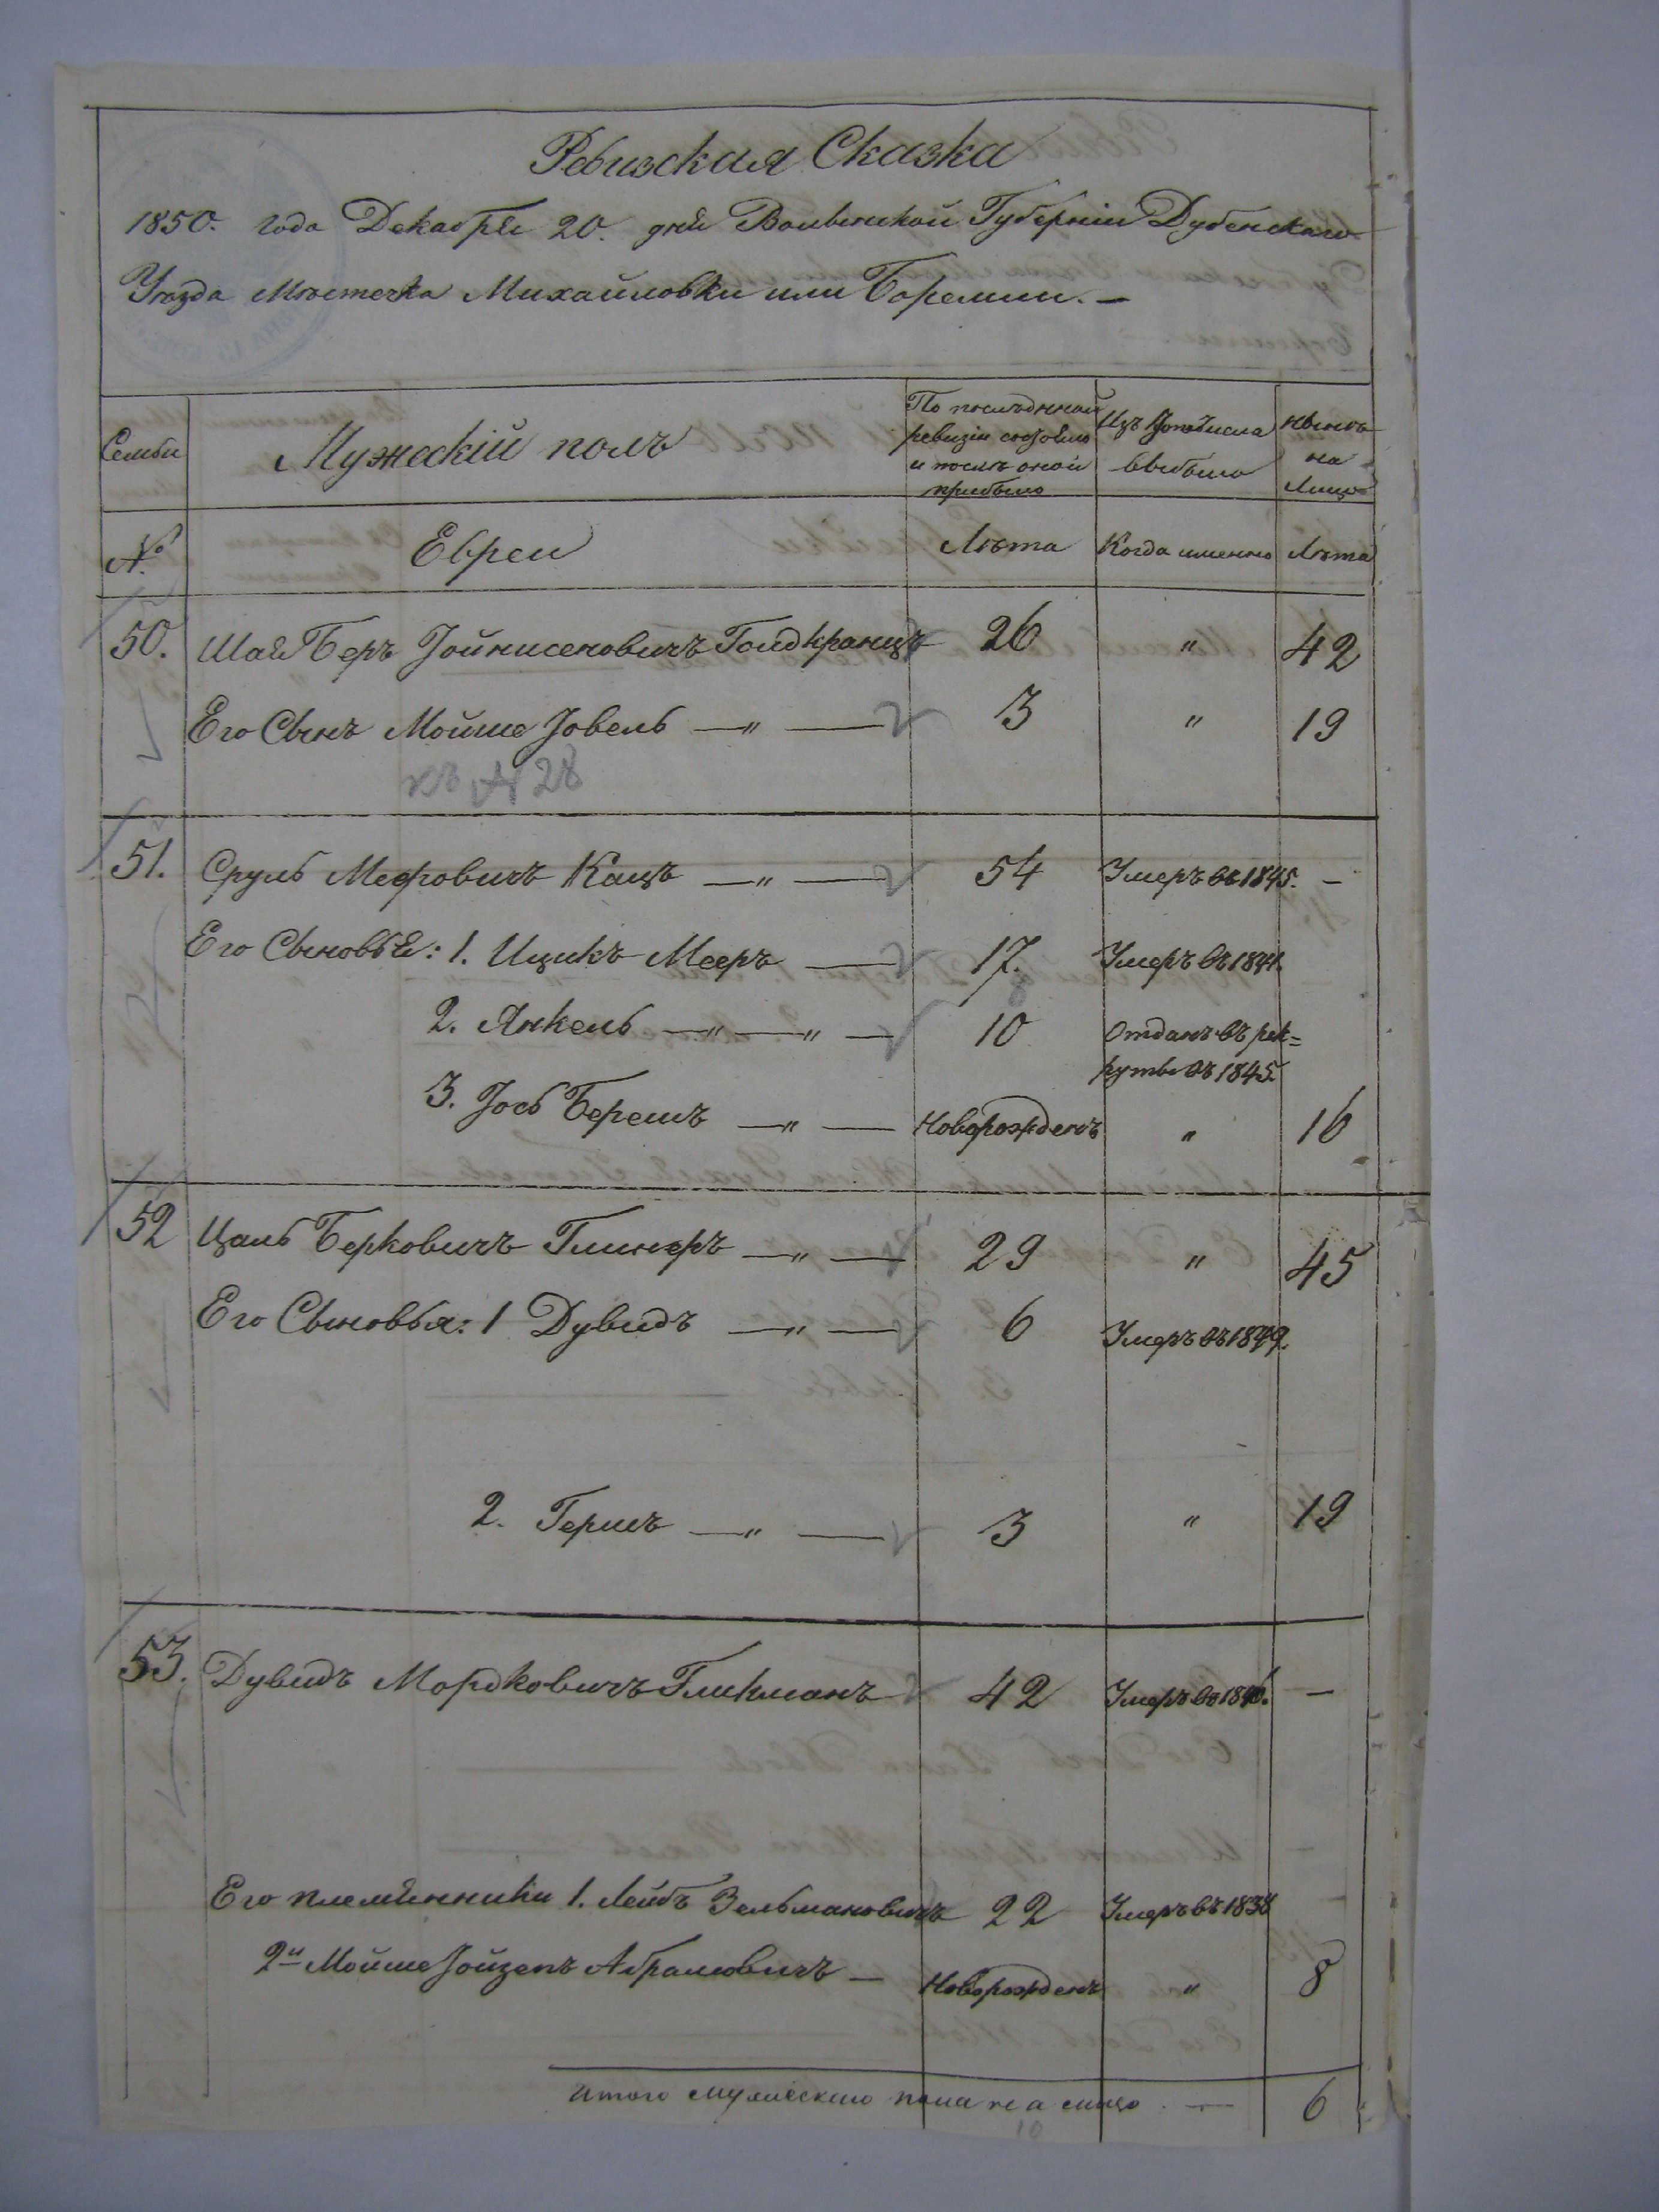 Ревизская Сказка
1850. года Декабря 20. дня Волынской Губерніи Дубенскаго
Уѣзда Мѣстечка Михайловки или Боремли. —
Семьи
Мужескій полъ
По послѣдней ревизіи состояло и послѣ оной прибыло
Изъ того числа выбыло
Нынѣ на лицо
№
Евреи
Лѣта
Когда именно
Лѣта
50. Шая Беръ Іойнисеновичъ Голдкранцъ 26 " 42
Его Сынъ Мойше Іовель —"— 3 " 19
къ № 28
51. Сруль Мееровичъ Кацъ —"— 54 Умеръ въ 1845. —
Его Сыновья: 1. Ицикъ Мееръ — 17. Умеръ въ 1841.
2. Янкель —"—"— 10 Отданъ въ рек=
руты въ 1845.
3. Іось Берешъ —"— Новорожденъ " 16
52 Цаль Берковичъ Глинеръ —"— 29 " 45
Его Сыновья: 1 Дувидъ —"— 6 Умеръ въ 1849.
2. Гершъ —"— 3 " 19
53. Дувидъ Мордковичъ Гликманъ 42 Умеръ въ 1846. —
Его племянники 1. Лейбъ Зельмановичъ 22 Умеръ въ 1838
2й Мойше Іойзепъ Абрамовичъ — Новорожденъ " 8
Итого мужескаго пола на лицо . — 6
10